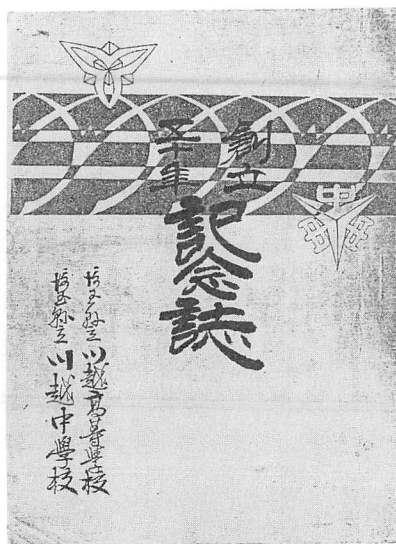 創立
五十年
記念誌
中
埼玉縣立川越高等學校
埼玉縣立川越中學校